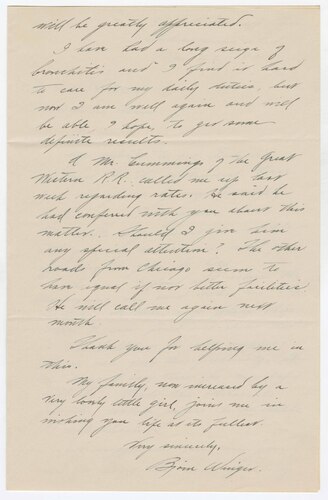 will be greatly appreciated.
I have had a long seige of
bronchitis and I find it hard
to care for my daily duties, but
now I am well again and will
be able, I hope, to get some
definite results.
A Mr. Cummings of the Great
Western R.R. called me up last
week regarding rates. He said he
had conferred with you about this
matter. Should I give him
any special attention? The other
roads from Chicago seem to
have equal if not better facilities.
He will call me again next
month.
Thank you for helping me in
this.
My family, now increased by a
very lovely little girl, joins me in
wishing you life at its fullest.
Very sincerely,
Bjorn Winger.